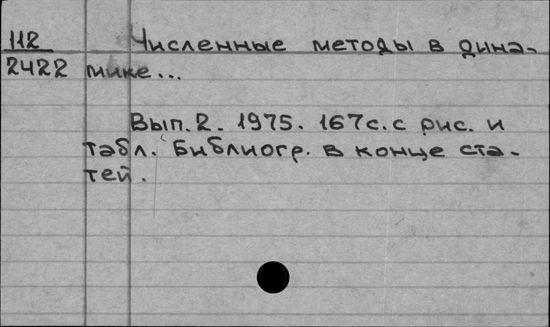 112 Численные методы в дина-
2422 мике...
Вып. 2. 1975. 167с. с рис. и
табл. Библиогр. в конце ста-
тей.